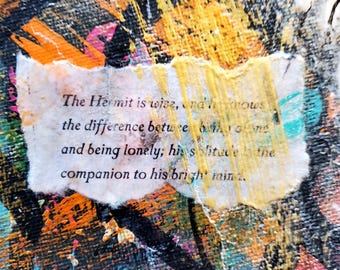 The Hermit is wise, and he knows
the difference between being alone
and being lonely; his solitude is the
companion to his bright mind.